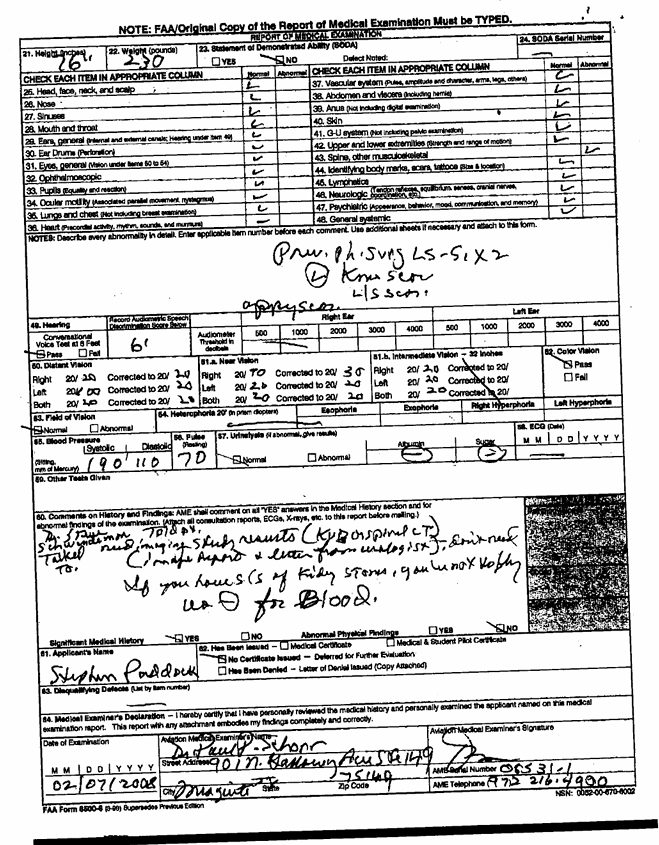 NOTE: FAA/Original Copy of the Report of Medical Examination Must be TYPED.
REPORT OF MEDICAL EXAMINATION
21. Height (inches) 76" 22. Weight (pounds) 230 23. Statement of Demonstrated Ability (SODA) YES NO Defect Noted: 24. SODA Serial Number
CHECK EACH ITEM IN APPROPRIATE COLUMN Normal Abnormal CHECK EACH ITEM IN APPROPRIATE COLUMN Normal Abnormal
25. Head, face, neck, and scalp
26. Nose
27. Sinuses
28. Mouth and throat
29. Ears, general (Internal and external canals; Hearing under item 49)
30. Ear Drums (Perforation)
31. Eyes, general (Vision under items 50 to 54)
32. Ophthalmoscopic
33. Pupils (Equality and reaction)
34. Ocular motility (Associated parallel movement, nystagmus)
35. Lungs and chest (Not including breast examination)
36. Heart (Precordial activity, rhythm, sounds, and murmurs)
37. Vascular system (Pulse, amplitude and character, arms, legs, others)
38. Abdomen and viscera (Including hernia)
39. Anus (Not including digital examination)
40. Skin
41. G-U system (Not including pelvic examination)
42. Upper and lower extremities (Strength and range of motion)
43. Spine, other musculoskeletal
44. Identifying body marks, scars, tattoos (Size & location)
45. Lymphatics
46. Neurologic (Tendon reflexes, equilibrium, senses, cranial nerves, coordination, etc.)
47. Psychiatric (Appearance, behavior, mood, communication, and memory)
48. General systemic
NOTES: Describe every abnormality in detail. Enter applicable item number before each comment. Use additional sheets if necessary and attach to this form.
Prev. Ph. Surg LS-S1 X 2
L Knee scar
L/S scar.
appy scar.
49. Hearing Record Audiometric Speech Discrimination Score Below Right Ear Left Ear
Conversational Voice Test at 6 Feet Pass Fail 6' Audiometer Threshold in decibels 500 1000 2000 3000 4000 500 1000 2000 3000 4000
50. Distant Vision 51.a. Near Vision 51.b. Intermediate Vision – 32 Inches 52. Color Vision
Right 20/ 20 Corrected to 20/ 20 Right 20/ 70 Corrected to 20/ 30 Right 20/ 20 Corrected to 20/ Pass
Left 20/ Corrected to 20/ 20 Left 20/ 20 Corrected to 20/ 20 Left 20/ 20 Corrected to 20/ Fail
Both 20/ 20 Corrected to 20/ 20 Both 20/ 20 Corrected to 20/ 20 Both 20/ 20 Corrected to 20/
53. Field of Vision Normal Abnormal 54. Heterophoria 20' (in prism diopters) Esophoria Exophoria Right Hyperphoria Left Hyperphoria
55. Blood Pressure Systolic Diastolic 56. Pulse (Resting) 57. Urinalysis (if abnormal, give results) Albumin Sugar 58. ECG (Date)
(Sitting, mm of Mercury) 190 110 70 Normal Abnormal M M D D Y Y Y Y
59. Other Tests Given
60. Comments on History and Findings: AME shall comment on all "YES" answers in the Medical History section and for
abnormal findings of the examination. (Attach all consultation reports, ECGs, X-rays, etc. to this report before mailing.)
need imaging study results (KUB or spiral CT)
(image report & letter from urologist),
If you have s/s of Kidney stones, you're not to fly
for Blood.
Significant Medical History YES NO Abnormal Physical Findings YES NO
61. Applicant's Name 62. Has Been Issued – Medical Certificate Medical & Student Pilot Certificate
Stephen Paddock No Certificate Issued – Deferred for Further Evaluation
Has Been Denied – Letter of Denial Issued (Copy Attached)
63. Disqualifying Defects (List by item number)
64. Medical Examiner's Declaration – I hereby certify that I have personally reviewed the medical history and personally examined the applicant named on this medical
examination report. This report with any attachment embodies my findings completely and correctly.
Date of Examination Aviation Medical Examiner's Name Aviation Medical Examiner's Signature
Street Address
M M D D Y Y Y Y 75149 AME Serial Number 06531-1
02/07/2008 City Mesquite State Zip Code AME Telephone (972 216-4990
FAA Form 8500-8 (3-99) Supersedes Previous Edition NSN: 0052-00-670-6002